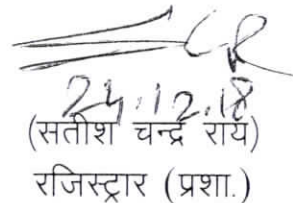 24.12.18
(सतीश चन्द्र राय)
रजिस्ट्रार (प्रशा.)